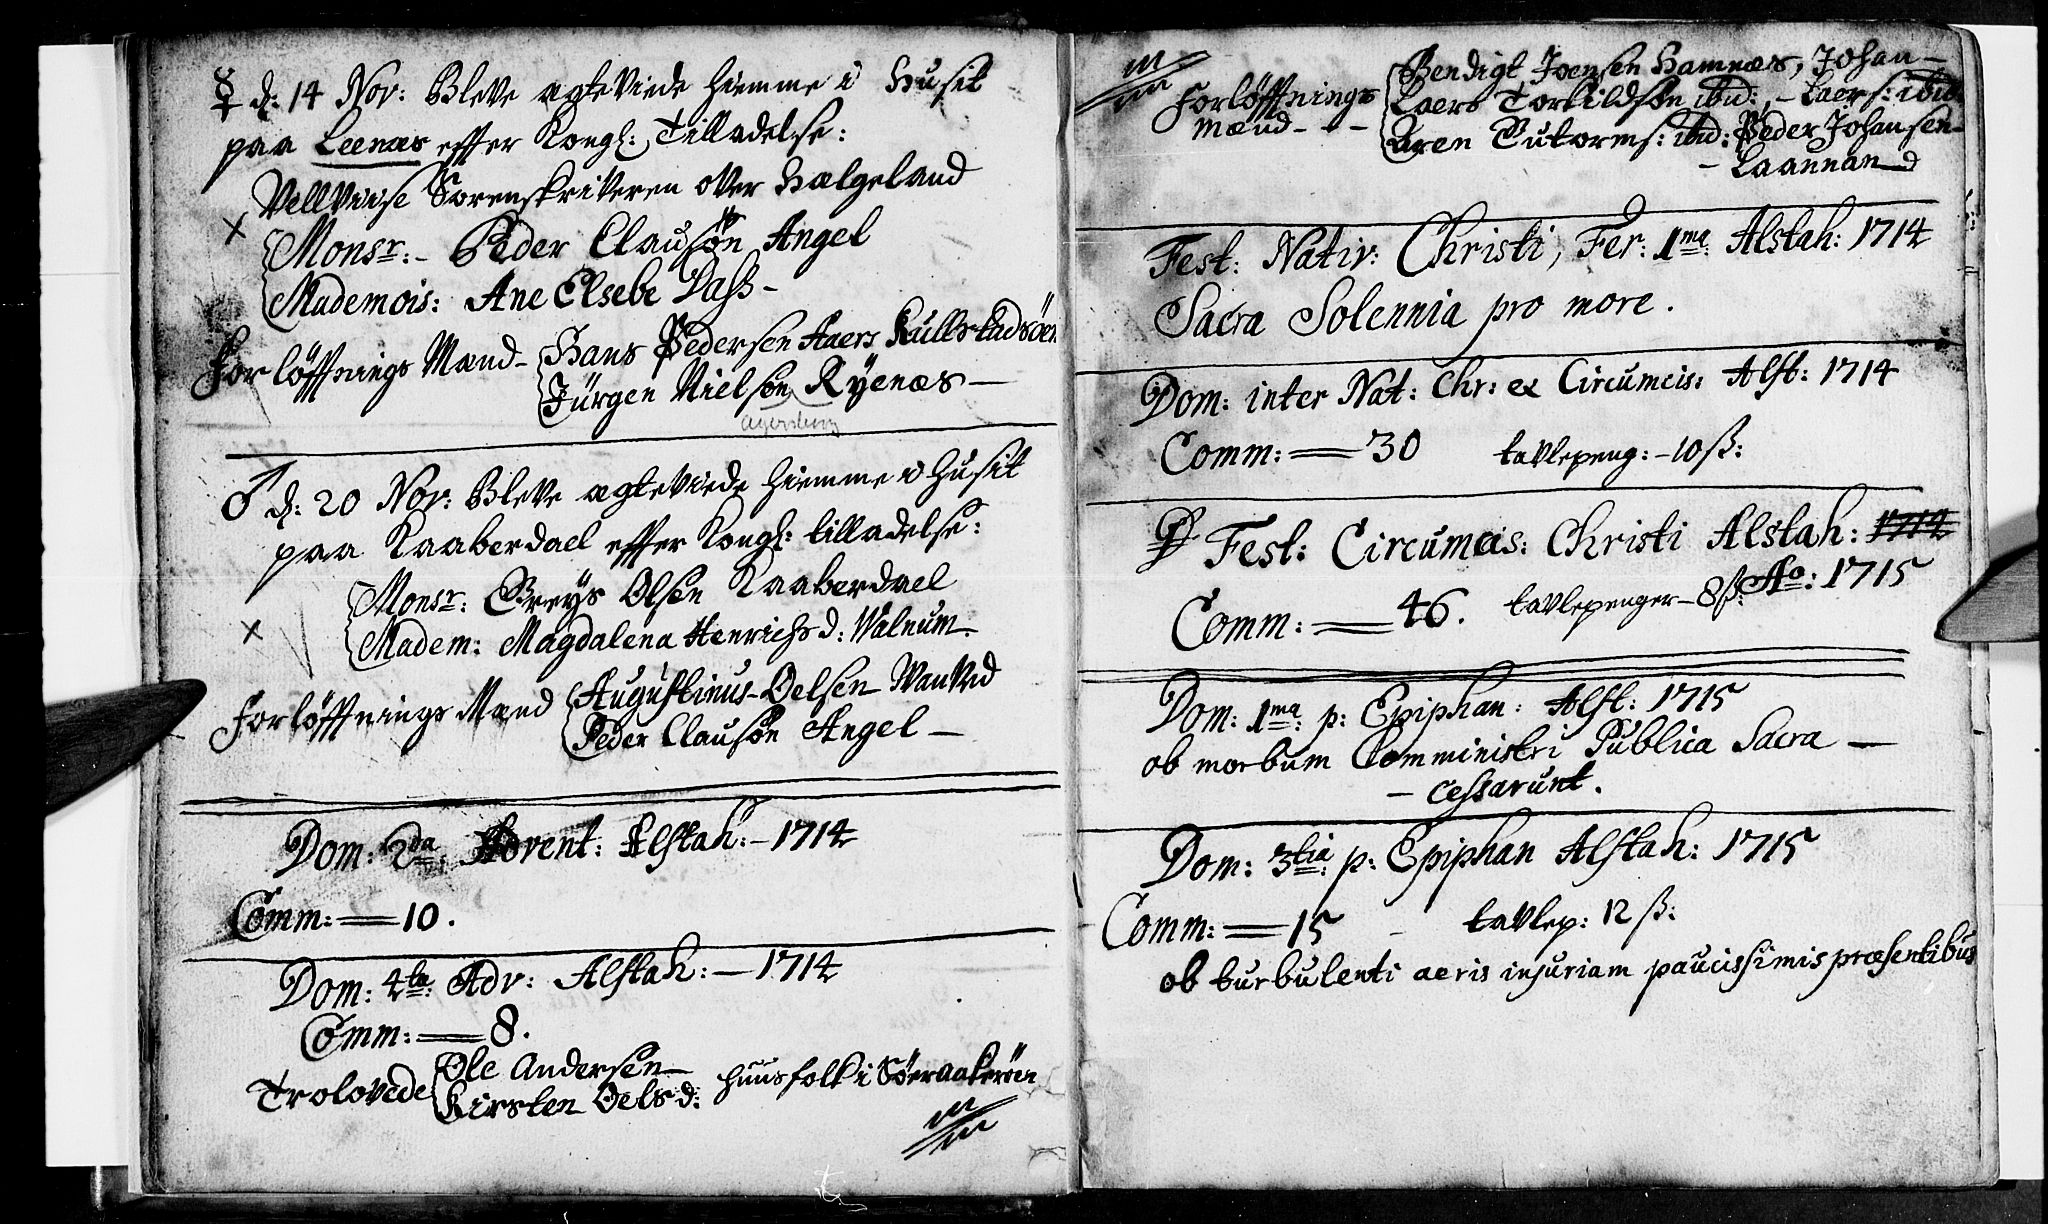 ☿ d: 14 Nov: Bleve ægteviede hiemme i Husit
paa Leenæs effter Kongl: Tilladelse:
Vellviise Sorenskriveren over Hælgeland
x Monsr:- Peder Clausøn Angel
Mademois: Ane Elsebe Dass-
Forløffnings Mænd- Hans Pedersen Aaers Kullstadsøen
Jürgen Nielsøn Ryenæs-
♂ d: 20 Nov: Bleve ægteviede hiemme i Husit
paa Kaaberdael effter Kongl: tilladelse:
Monsr: Greÿs Olsen Kaaberdael
x Madem: Magdalena Henrichsd: Walnum.
Forløffnings Mænd Augustinus-Oelsen Wanved
Peder Clausøn Angel-
Dom: 2da: Advent: Alstah:-1714
Comm: = 10.
Dom: 4ta: Adv: Alstah: - 1714
Comm: = 8.
Trolovede Ole Andersen-
Kirsten Oelsd: Huusfolk i Søeraakerøen
Forløffnings Bendigt Joensen Hamnæs, Johan-
Mænd - - Laers Torkildsøn ibid:, - Laers: ibid
Aren Gutorms: ibid: Peder Johansen-
- Laannan
Fest: Nativ: Christi, Fer: 1ma: Alstah: 1714
Sacra Solennia pro more.
Dom: inter Nat: Chr: et Circumcis: Alst: 1714
Comm: = 30 tavlepeng: - 10 ß:
Fest: Circumcis: Christi Alstah: 1714
Comm: = 46. tavlepenger - 8 ß: Ao: 1715
Dom: 1ma: p: Epiphan: Alst: 1715
ob morbum Comministri Publica Sacra -
- cessarunt.
Dom: 3tia: p: Epiphan Alstah: 1715
Comm: = 15 - tavlep: 12 ß:
ob turbulenti aeris injuriam paucissimis præsentibus